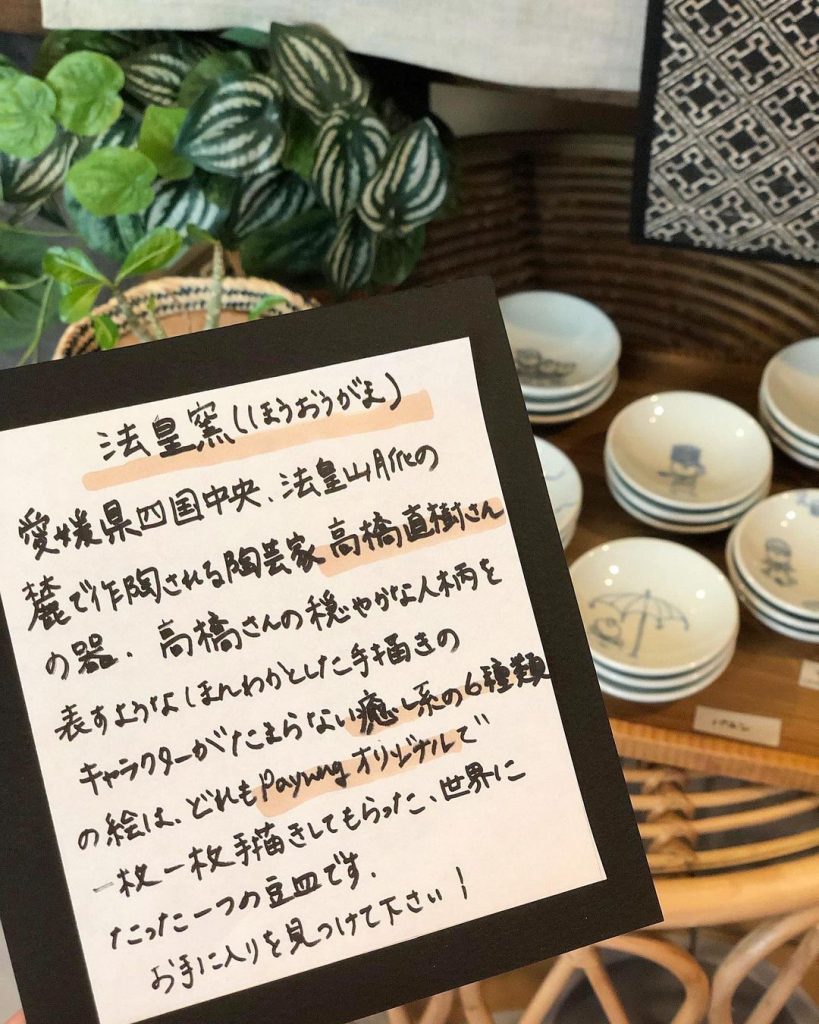 法皇窯(ほうおうがま)
愛媛県四国中央、法皇山脈の
麓で作陶される陶芸家 高橋直樹さん
の器。高橋さんの穏やかな人柄を
表すようなほんわかとした手描きの
キャラクターがたまらない癒し系の6種類
の絵は、どれもPayungオリジナルで
一枚一枚手描きしてもらった、世界に
たった一つの豆皿です。
お手に入りを見つけて下さい!